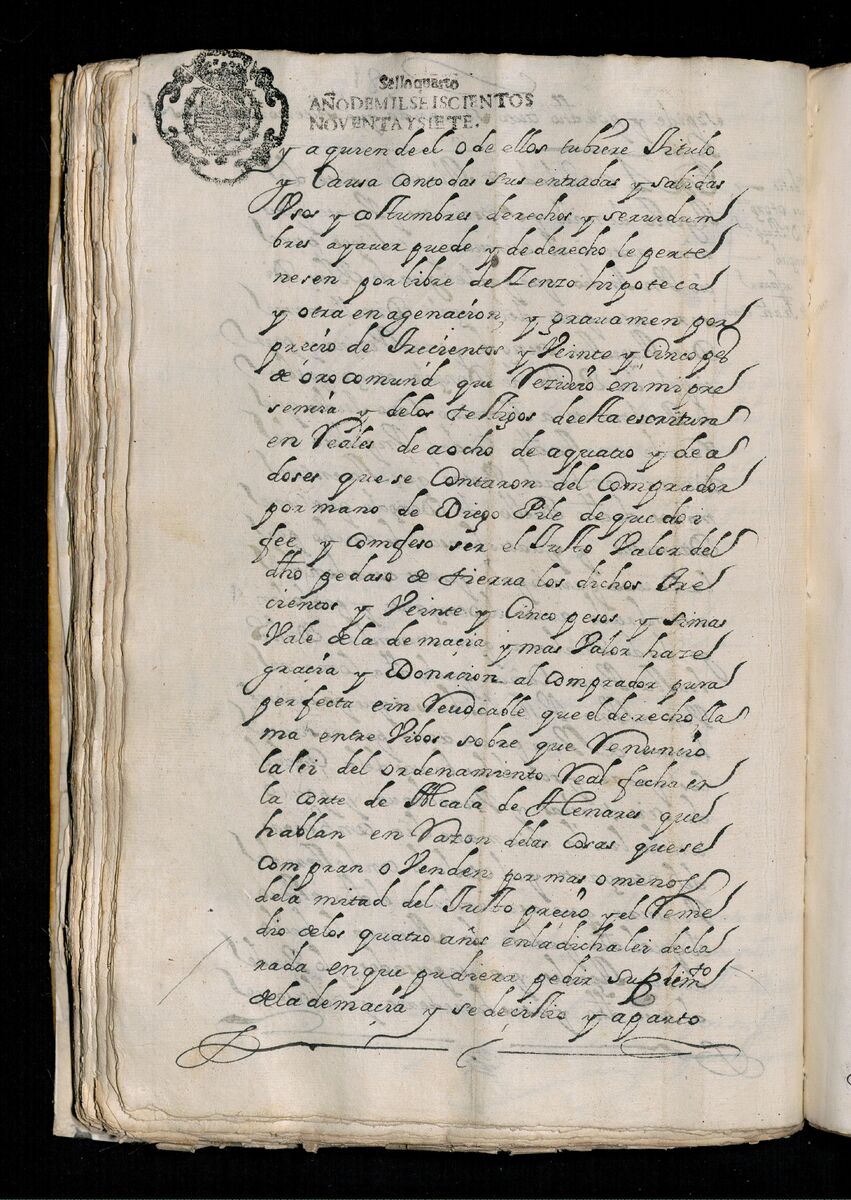 Sello quarto
AÑO DE MIL SEISCIENTOS
NOVENTA Y SIETE.
y a quien de el o de ellos tubiere Titulo
y Causa con todas sus entradas y salidas
Vsos y costumbres derechos y seruidum
bres q aya uer puede y de derecho le perte
nesen por libre de Zenzo hipoteca
y otra en agenacion, y gravamen por
precio de Trecientos y Veinte y Cinco pesos
de óro comund que Reziuió en mi pre
sencia y delos testigos de esta escritura
en Reales de a ocho de a quatro y de a
doses que se Contaron del Comprador
por mano de Diego Pile de que doi
fee y comfeso ser el Justo Valor del
dho pedaso de tierra los dichos Tre
cientos y Veinte y Cinco pesos y si mas
Vale dela demacia y mas Valor haze
gracia y Donacion al Comprador pura
perfecta e in Reuocable que el derecho lla
ma entre Vibos sobre que Renuncio
la lei del ordenamiento Real fecha en
la Corte de Alcala de Henares que
hablan en Razon delas Cosas que se
Compran o Venden por mas o menos
dela mitad del Justo precio y el Reme
dio delos quatro años en la dicha lei decla
rada en que pudiera pedir Suplemto
dela demacia y se decistio y aparto